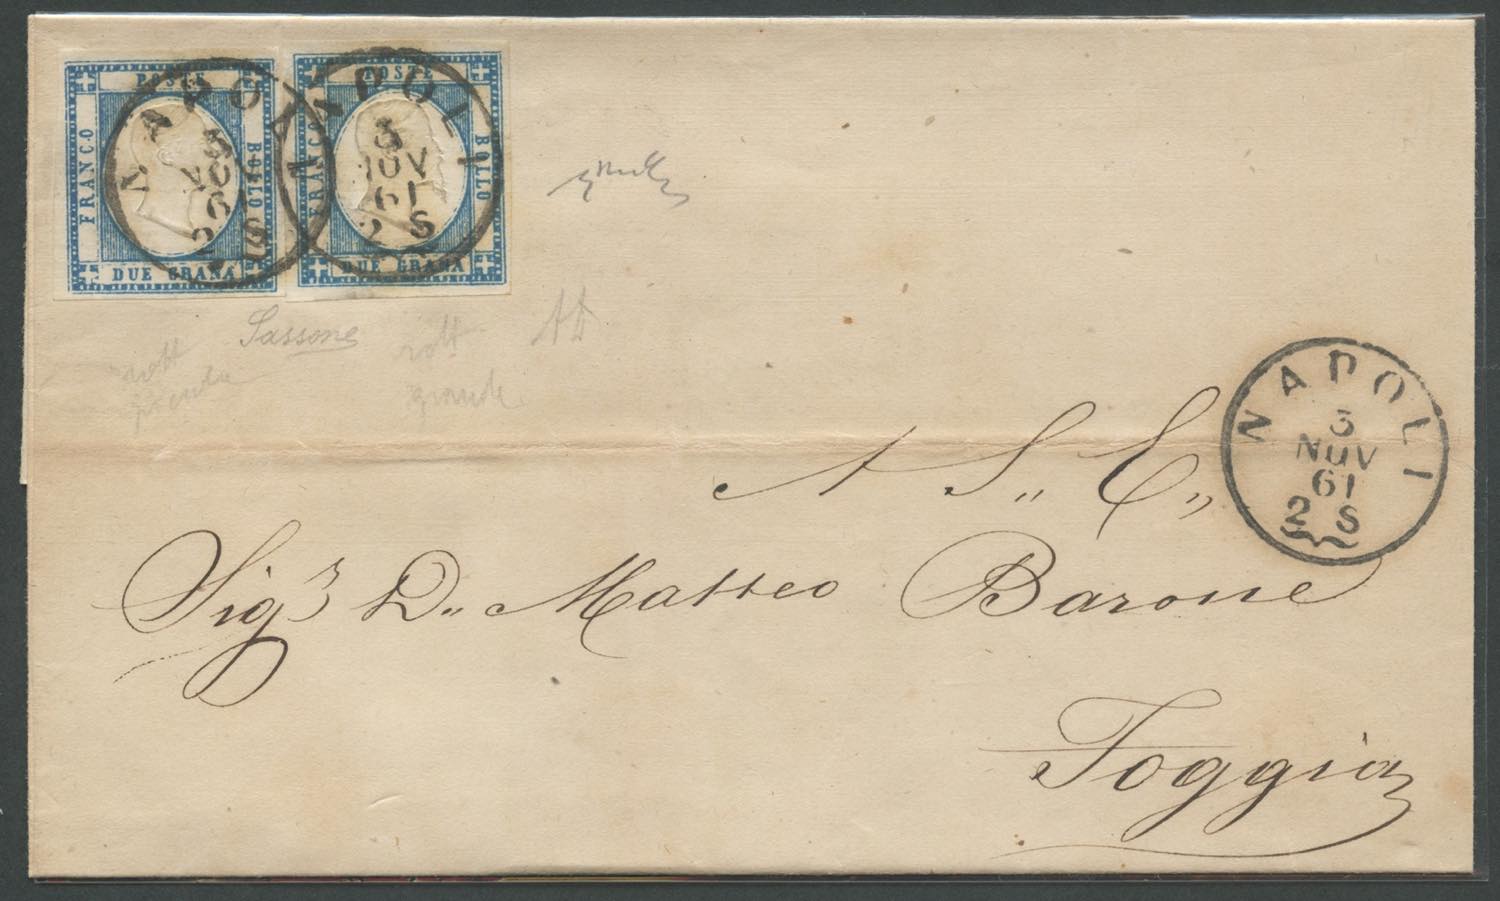 POSTE
FRANCO
BOLLO
DUE GRANA
NAPOLI
3
NOV
61
2 S
POSTE
FRANCO
BOLLO
DUE GRANA
NAPOLI
3
NOV
61
2 S
Sassone
grande
AD
NAPOLI
3
NOV
61
2 S
A S„ E„
Sigr D„ Matteo Barone
Foggia